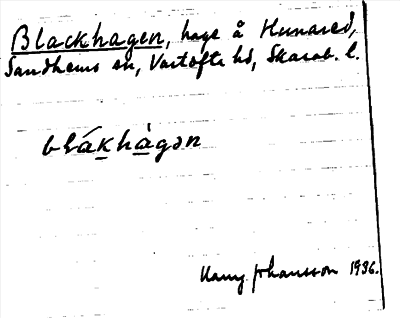 Blackhagen, hage å Hunared,
Sandhems sn, Vartofta hd, Skarab. l.
blák̲há̲gən
Harry Johansson 1936.